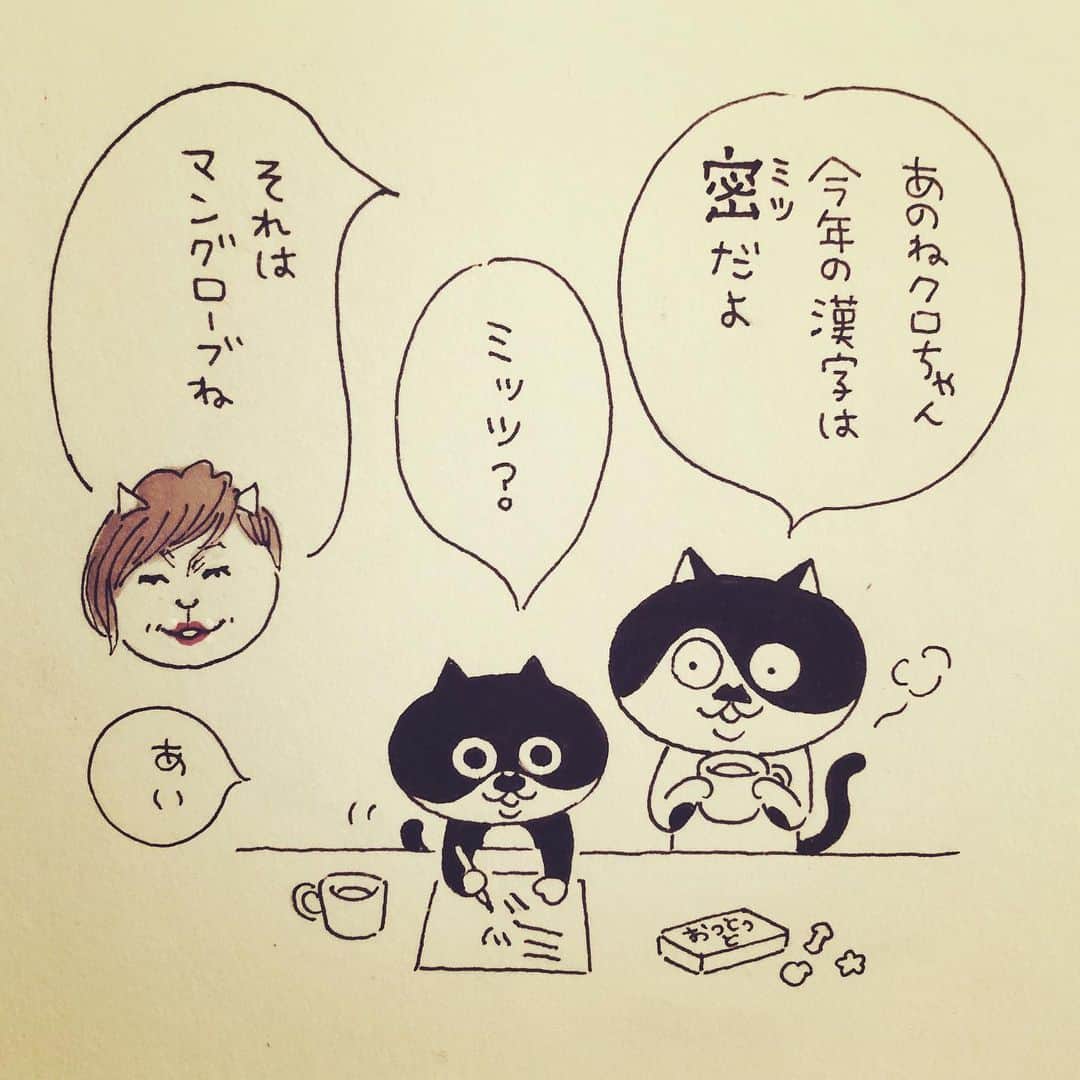 あのねクロちゃん
今年の漢字は
密だよ
ミツ
ミッツ?
それは
マングローブね
あい
おっとっ
と